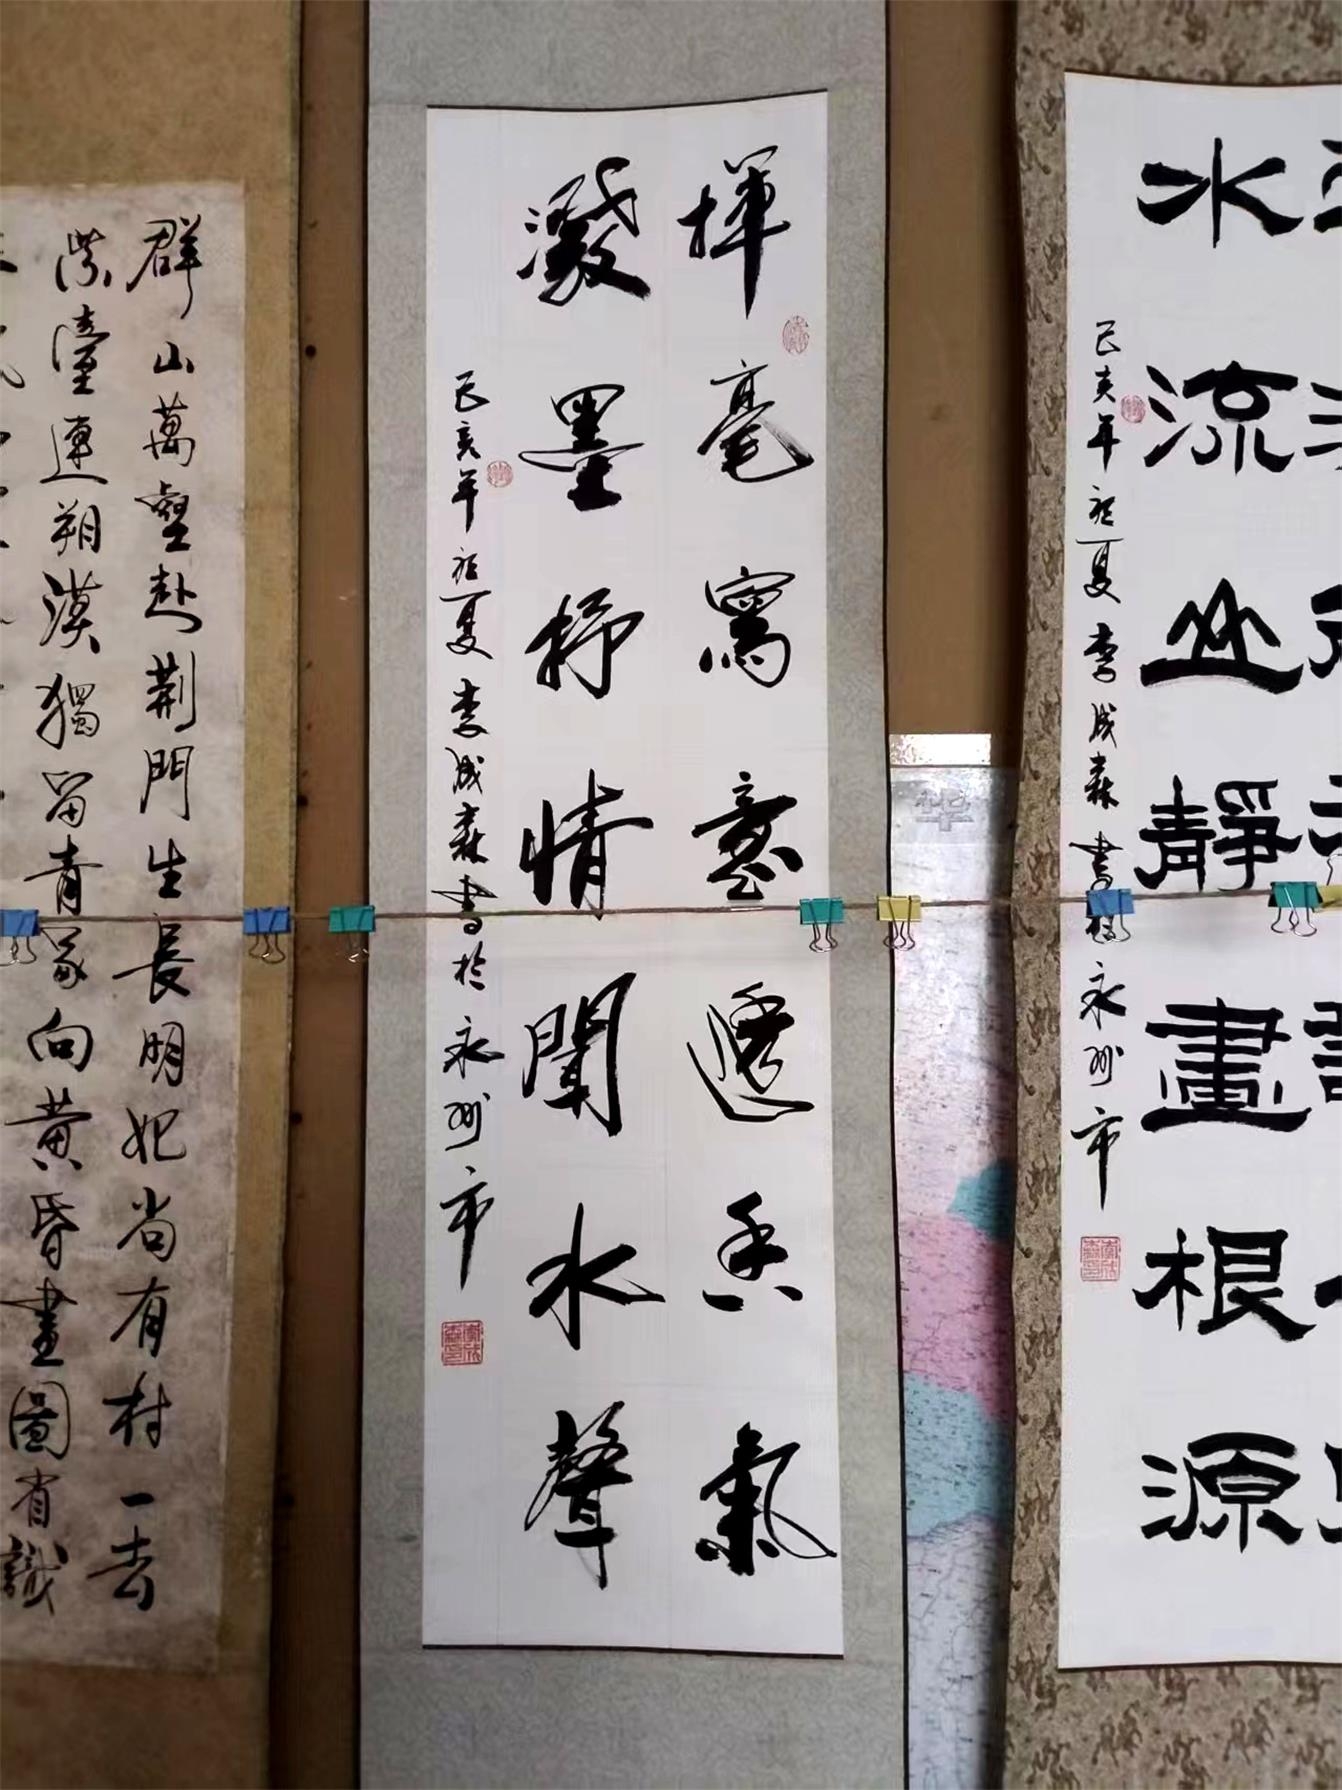 水流山靜畫根源
己亥年初夏李成森書於永州市
揮毫寫意透香氣
潑墨抒情聞水聲
己亥年初夏李成森書於永州市
群山萬壑赴荆門生長明妃尚有村一去
紫臺連朔漠獨留青冢向黄昏畫圖省識